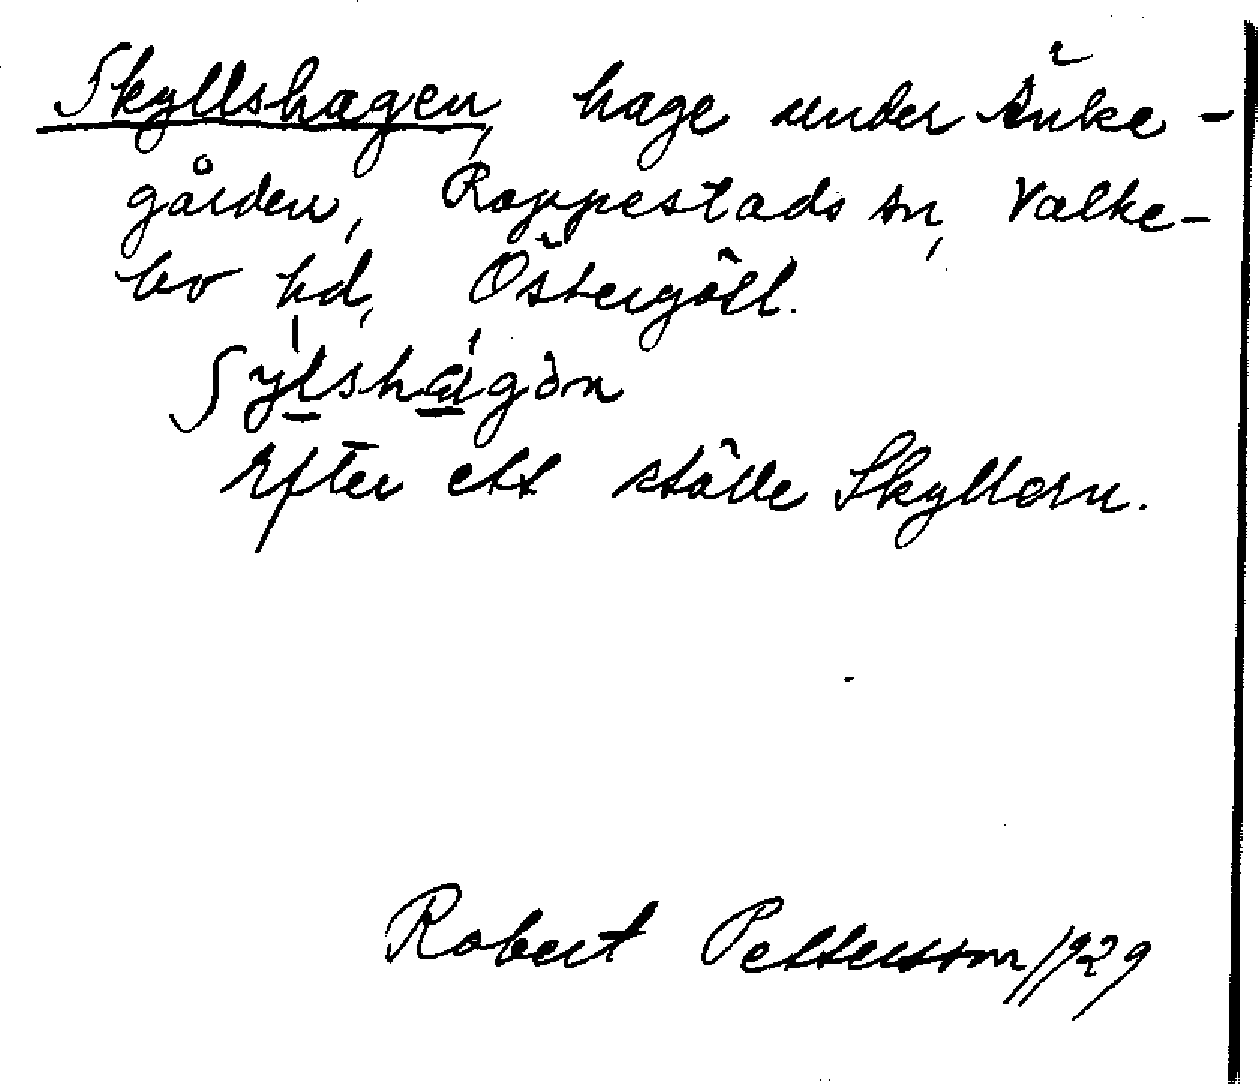 Skyllshagen, hage under Änke-
gården, Rappestads sn, Valke-
bo hd, Östergötl.
ʃylshagön
Efter ett ställe Skyllorn.
Robert Pettersson 1929